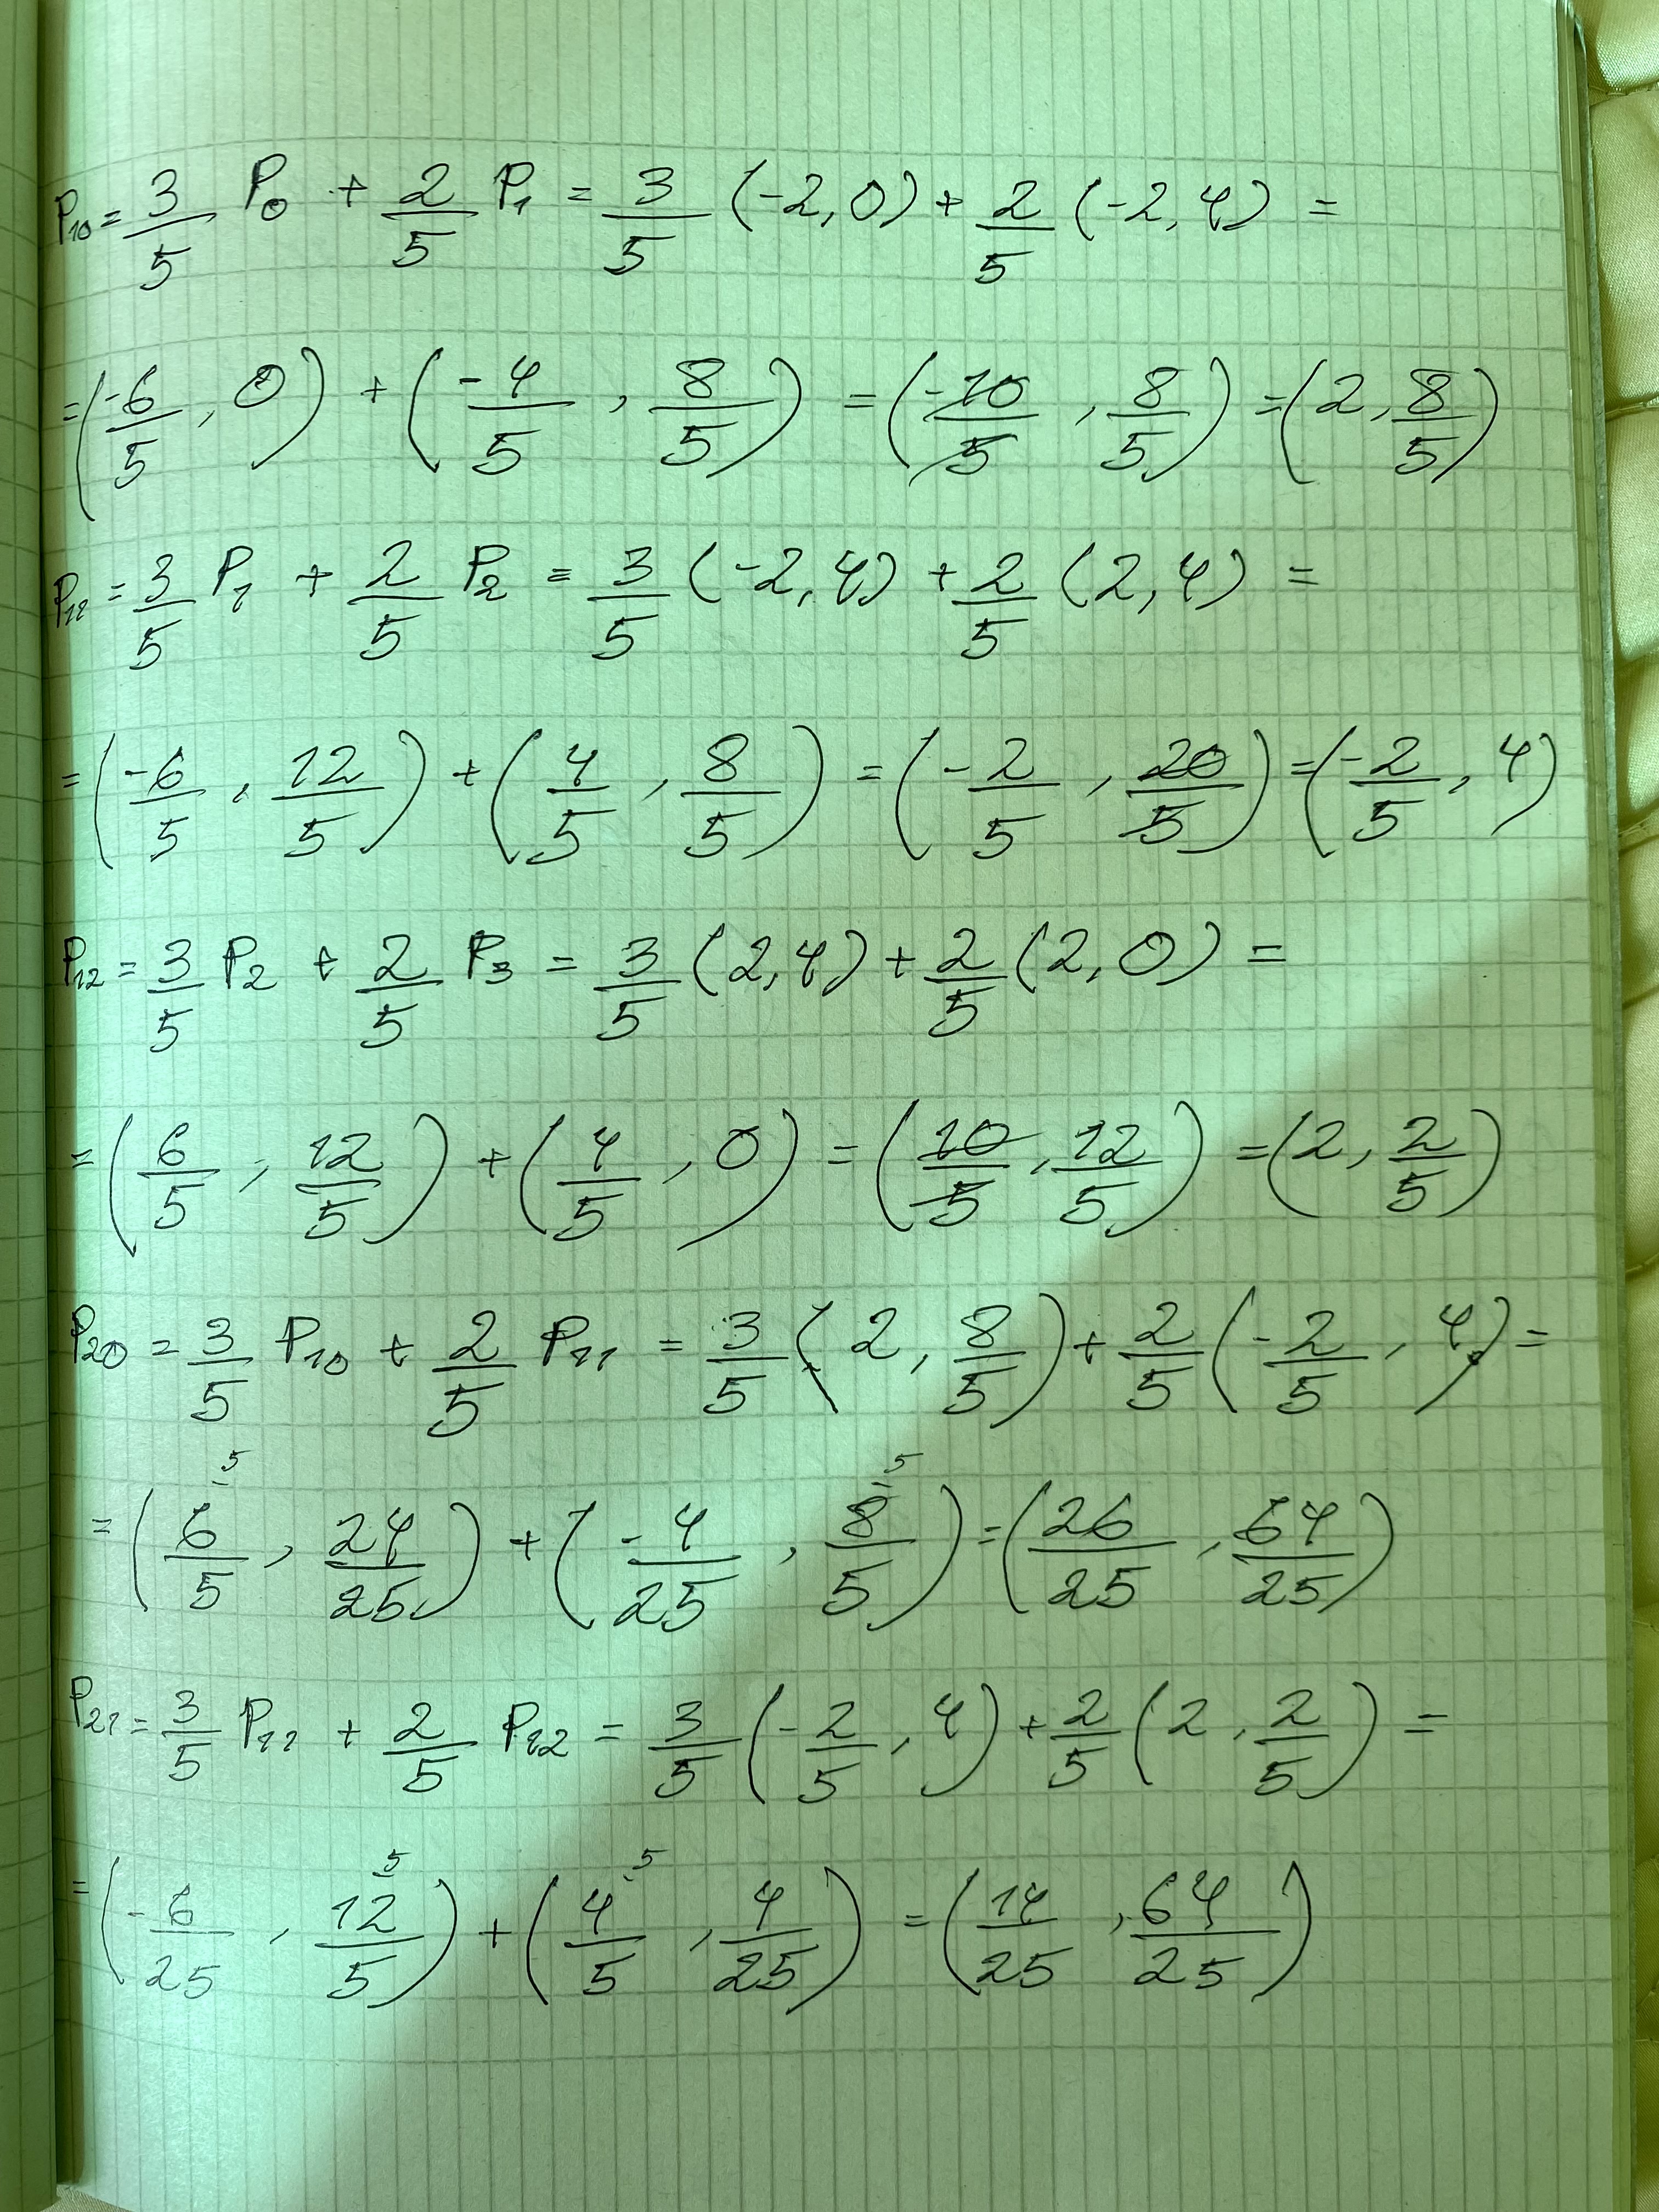 P₁₀ = 3/5 P₀ + 2/5 P₁ = 3/5 (-2, 0) + 2/5 (-2, 4) =
= (-6/5, 0) + (-4/5, 8/5) = (-10/5, 8/5) = (2, 8/5)
P₁₁ = 3/5 P₁ + 2/5 P₂ = 3/5 (-2, 4) + 2/5 (2, 4) =
= (-6/5, 12/5) + (4/5, 8/5) = (-2/5, 20/5) = (-2/5, 4)
P₁₂ = 3/5 P₂ + 2/5 P₃ = 3/5 (2, 4) + 2/5 (2, 0) =
= (6/5, 12/5) + (4/5, 0) = (10/5, 12/5) = (2, 2/5)
P₂₀ = 3/5 P₁₀ + 2/5 P₁₁ = 3/5 (2, 8/5) + 2/5 (-2/5, 4) =
5 5
= (6/5, 24/25) + (-4/25, 8/5) = (26/25, 64/25)
P₂₁ = 3/5 P₁₁ + 2/5 P₁₂ = 3/5 (-2/5, 4) + 2/5 (2, 2/5) =
5 5
= (-6/25, 12/5) + (4/5, 4/25) = (14/25, 64/25)